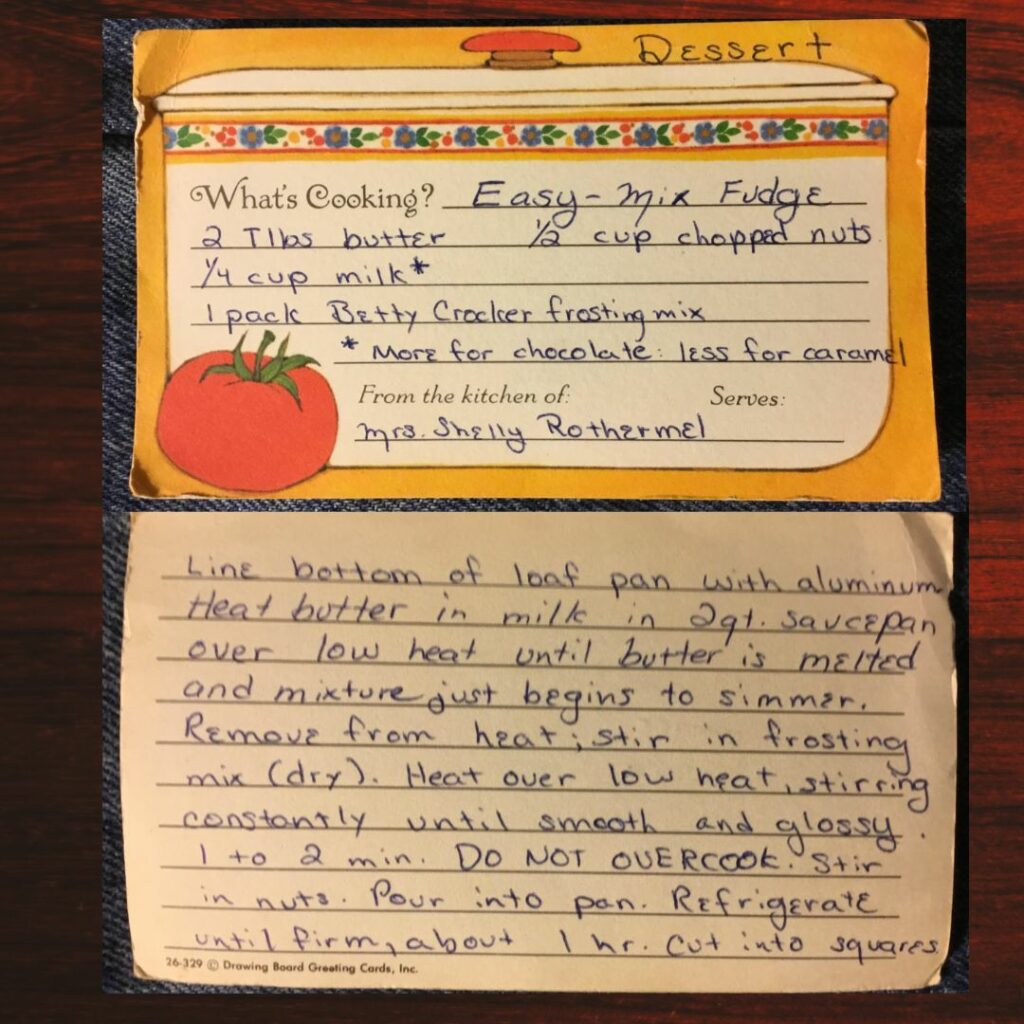 Dessert
What's Cooking? Easy-Mix Fudge
2 Tlbs butter 1/2 cup chopped nuts
1/4 cup milk*
1 pack Betty Crocker frosting mix
* More for chocolate: less for caramel
From the kitchen of: Serves:
Mrs. Shelly Rothermel
Line bottom of loaf pan with aluminum
Heat butter in milk in 2qt. saucepan
over low heat until butter is melted
and mixture just begins to simmer.
Remove from heat; stir in frosting
mix (dry). Heat over low heat, stirring
constantly until smooth and glossy.
1 to 2 min. DO NOT OVERCOOK. Stir
in nuts. Pour into pan. Refrigerate
until firm, about 1 hr. Cut into squares
26-329 © Drawing Board Greeting Cards, Inc.